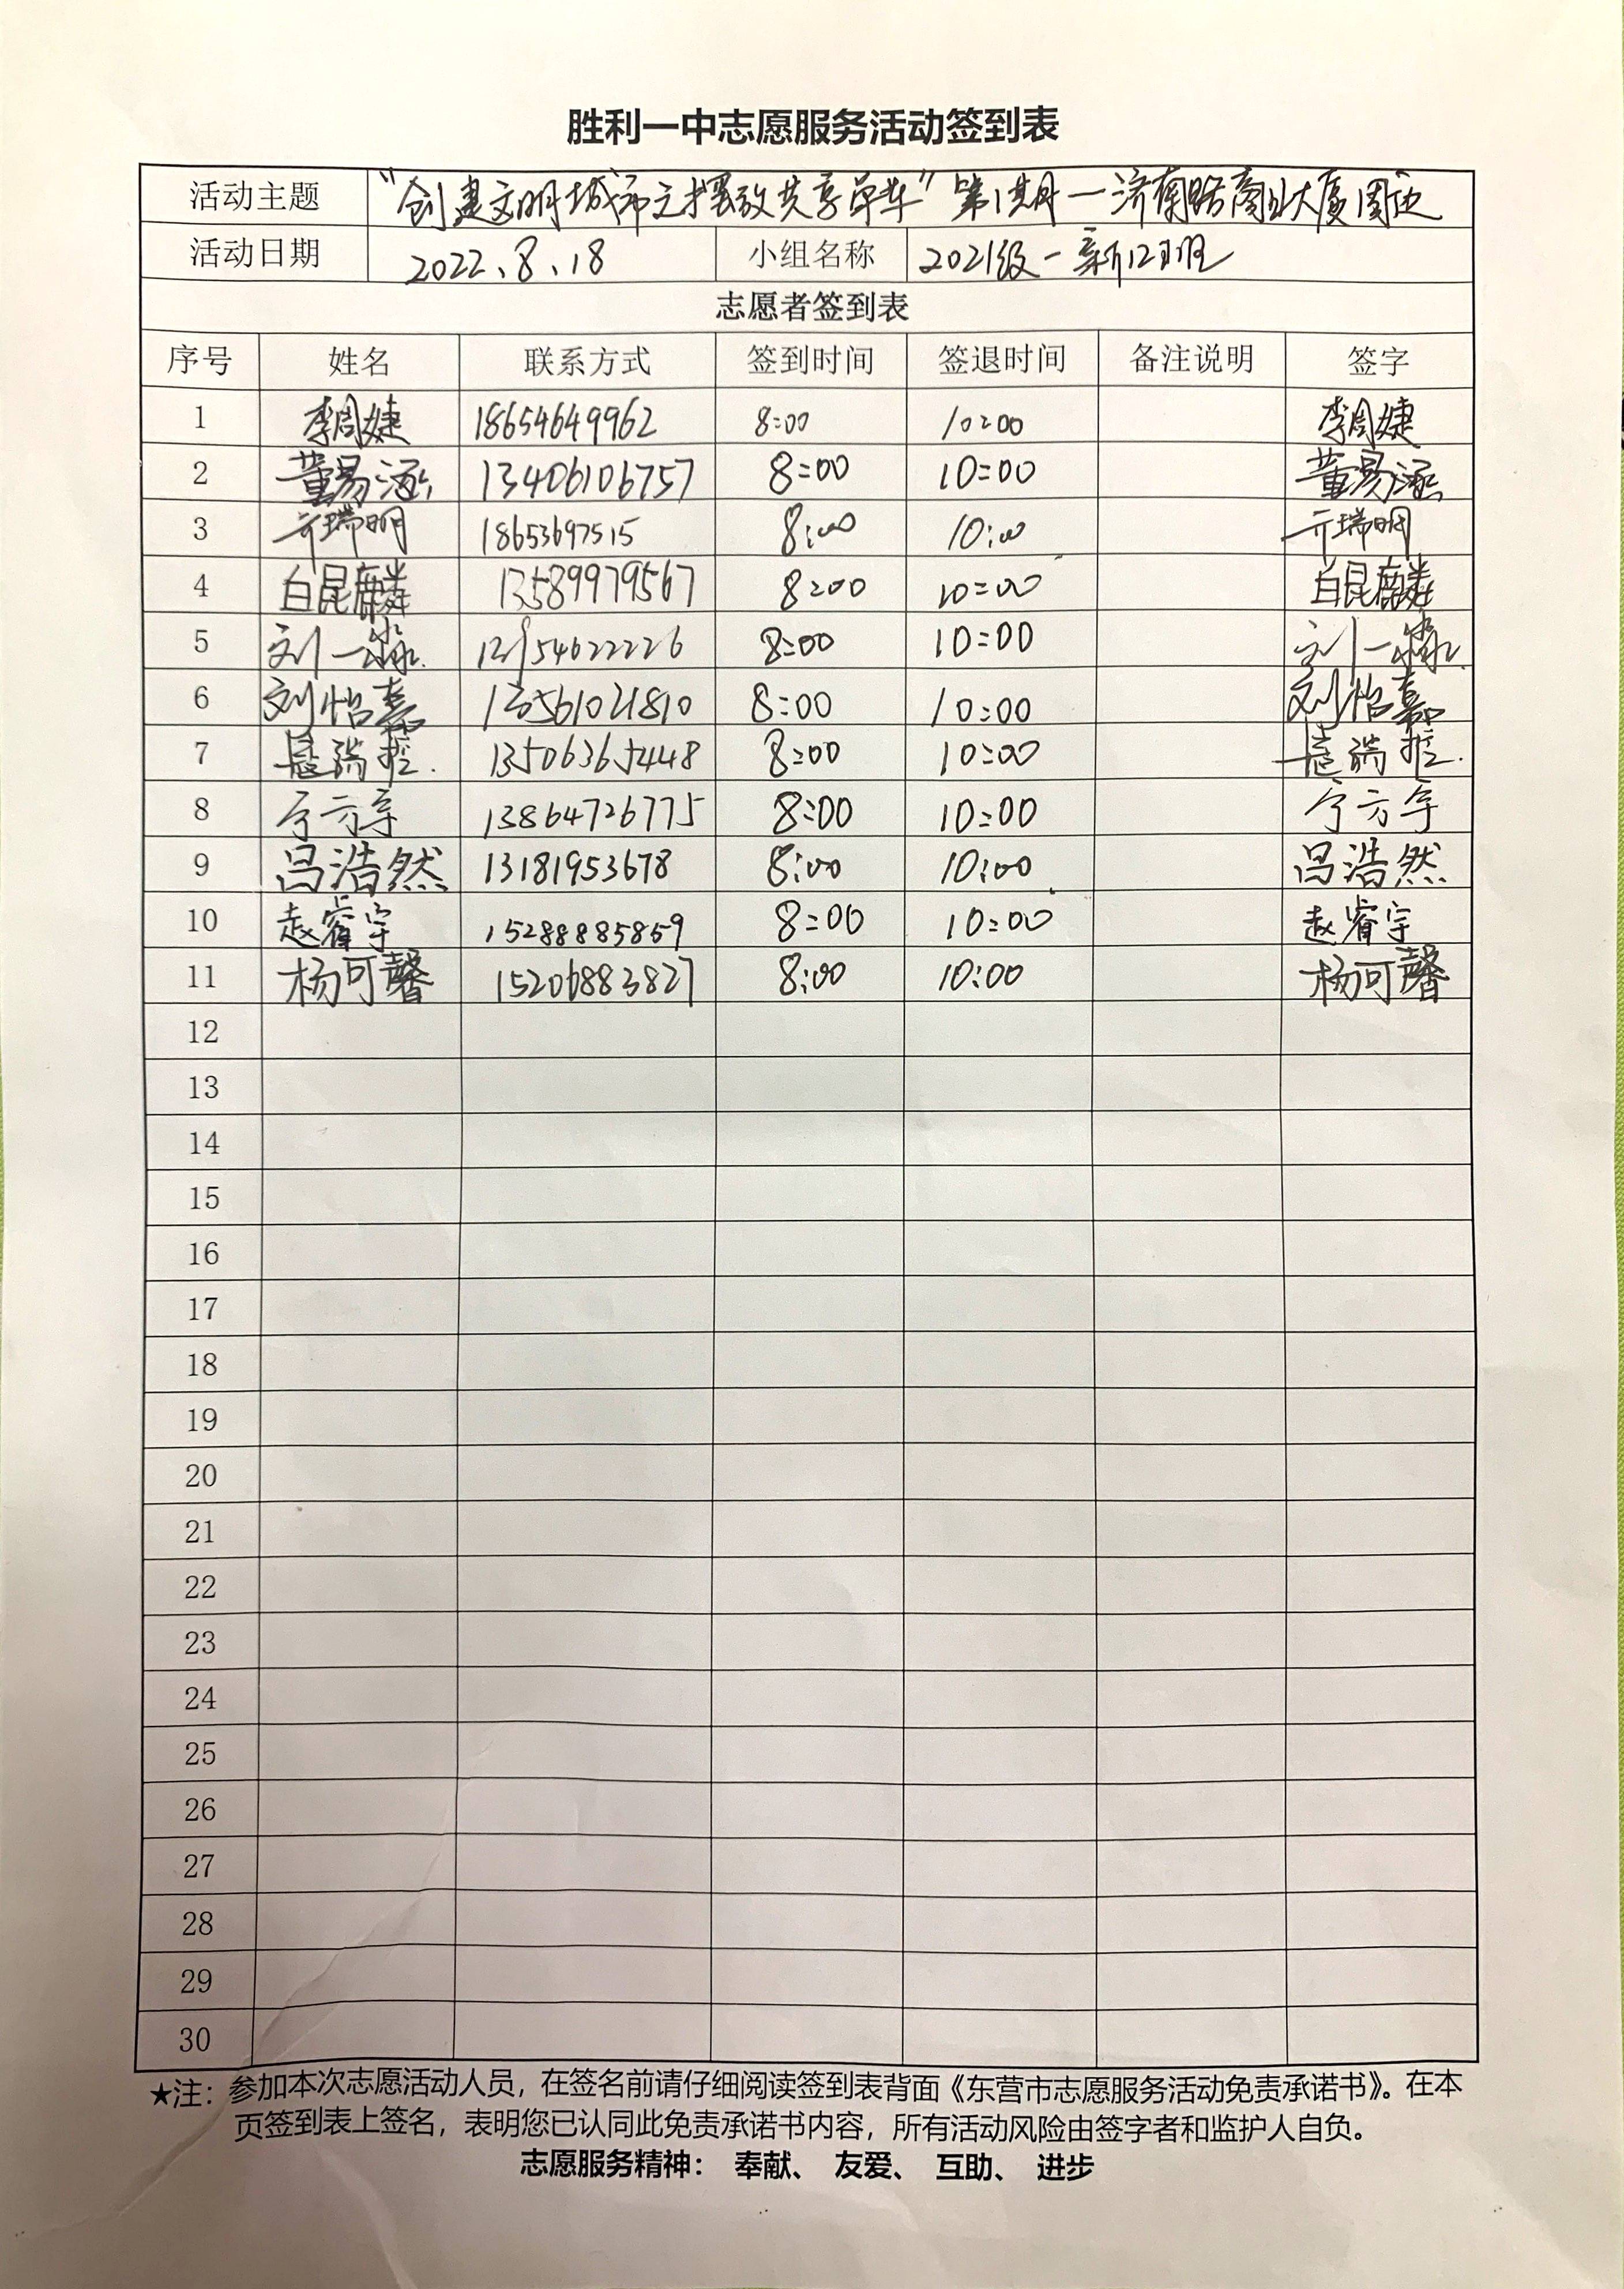 胜利一中志愿服务活动签到表
活动主题 “创建文明城市之摆放共享单车”第1期—济南路商业大厦周边
活动日期 2022、8、18 小组名称 2021级-新12班
志愿者签到表
序号 姓名 联系方式 签到时间 签退时间 备注说明 签字
1 李周婕 18654649962 8:00 10:00 李周婕
2 董易涵 13406106757 8:00 10:00 董易涵
3 亓瑞明 18653697515 8:00 10:00 亓瑞明
4 白昆麟 13589979567 8:00 10:00 白昆麟
5 刘一淼 8:00 10:00 刘一淼
6 刘怡嘉 13561021810 8:00 10:00 刘怡嘉
7 13506365448 8:00 10:00
8 13864726775 8:00 10:00
9 吕浩然 13181953678 8:00 10:00 吕浩然
10 赵睿宇 15288885859 8:00 10:00 赵睿宇
11 杨可馨 15206883827 8:00 10:00 杨可馨
12
13
14
15
16
17
18
19
20
21
22
23
24
25
26
27
28
29
30
★注：参加本次志愿活动人员，在签名前请仔细阅读签到表背面《东营市志愿服务活动免责承诺书》。在本
页签到表上签名，表明您已认同此免责承诺书内容，所有活动风险由签字者和监护人自负。
志愿服务精神： 奉献、 友爱、 互助、 进步